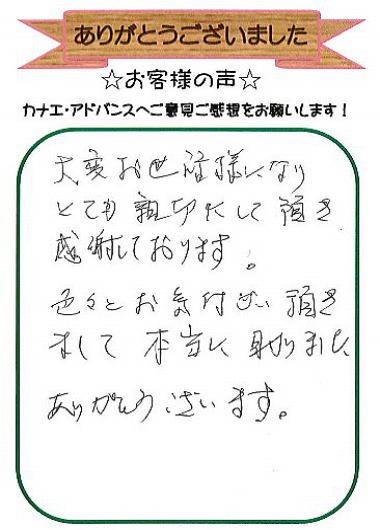 ありがとうございました
☆お客様の声☆
カナエ・アドバンスへご意見ご感想をお願いします！
大変お世話様になり
とても親切にして頂き
感謝しております。
色々とお気付かい頂き
まして本当に助りました
ありがとうございます。